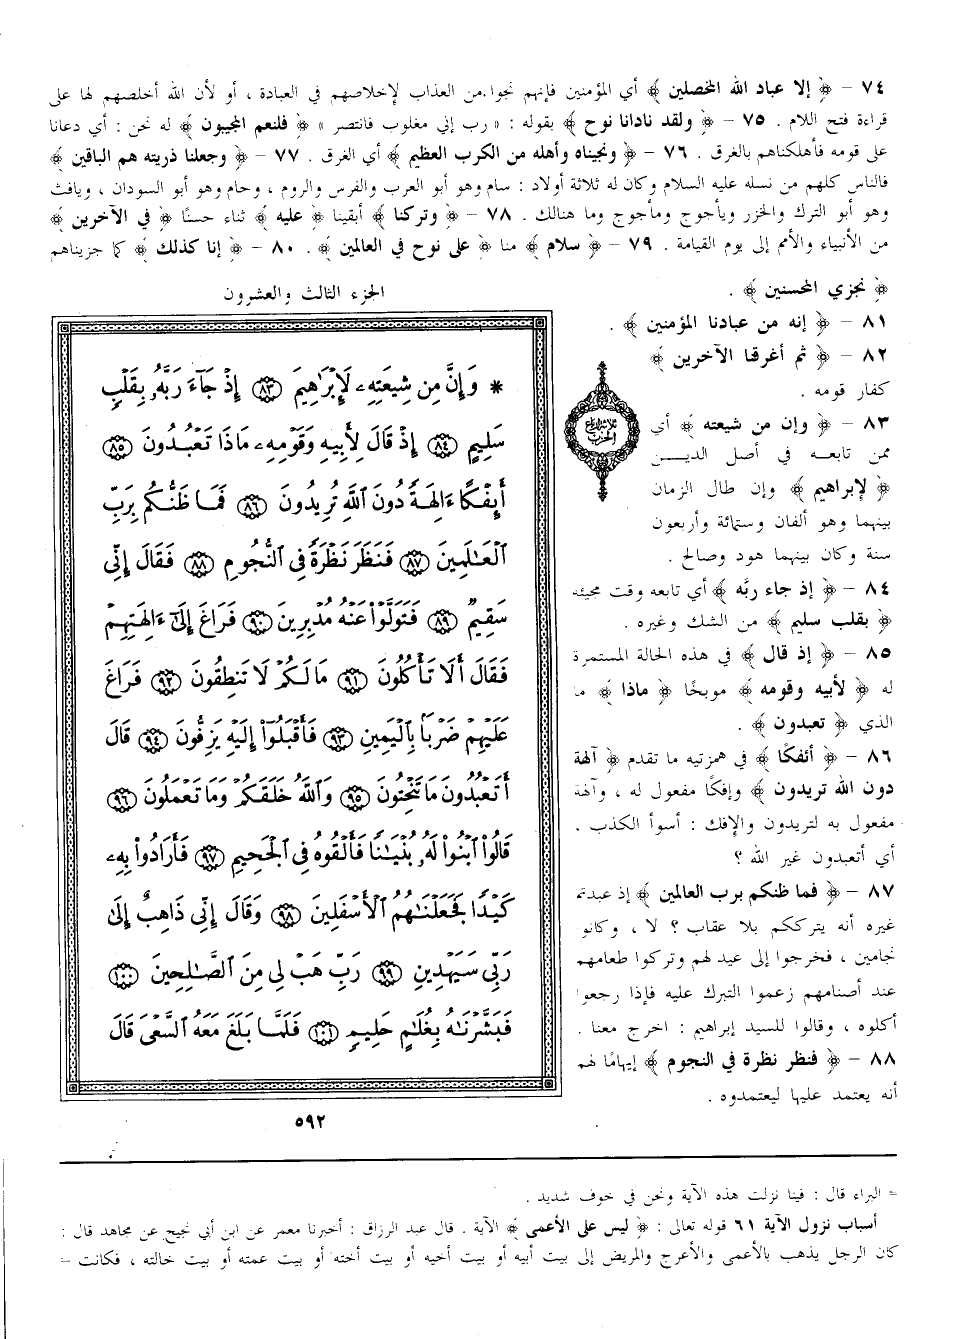 ٧٤ – ﴿ إلا عباد الله المخلصين ﴾ أي المؤمنين فإنهم نجوا من العذاب لإخلاصهم في العبادة ، أو لأن الله أخلصهم لها على
قراءة فتح اللام . ٧٥ – ﴿ ولقد نادانا نوح ﴾ بقوله : « رب إني مغلوب فانتصر » ﴿ فلنعم المجيبون ﴾ له نحن : أي دعانا
على قومه فأهلكناهم بالغرق . ٧٦ – ﴿ ونجيناه وأهله من الكرب العظيم ﴾ أي الغرق . ٧٧ – ﴿ وجعلنا ذريته هم الباقين ﴾
فالناس كلهم من نسله عليه السلام وكان له ثلاثة أولاد : سام وهو أبو العرب والفرس والروم ، وحام وهو أبو السودان ، ويافث
وهو أبو الترك والخزر ويأجوج ومأجوج وما هنالك . ٧٨ – ﴿ وتركنا ﴾ أبقينا ﴿ عليه ﴾ ثناء حسنًا ﴿ في الآخرين ﴾
من الأنبياء والأمم إلى يوم القيامة . ٧٩ – ﴿ سلام ﴾ منا ﴿ على نوح في العالمين ﴾ . ٨٠ – ﴿ إنا كذلك ﴾ كما جزيناهم
﴿ نجزي المحسنين ﴾ .
٨١ – ﴿ إنه من عبادنا المؤمنين ﴾ .
٨٢ – ﴿ ثم أغرقنا الآخرين ﴾
كفار قومه .
٨٣ – ﴿ وإن من شيعته ﴾ أي
ممن تابعه في أصل الديـــن
﴿ لإبراهيم ﴾ وإن طال الزمان
بينهما وهو ألفان وستمائة وأربعون
سنة وكان بينهما هود وصالح .
٨٤ – ﴿ إذ جاء ربَّه ﴾ أي تابعه وقت مجيئه
﴿ بقلب سليم ﴾ من الشك وغيره .
٨٥ – ﴿ إذ قال ﴾ في هذه الحالة المستمرة
له ﴿ لأبيه وقومه ﴾ موبخًا ﴿ ماذا ﴾ ما
الذي ﴿ تعبدون ﴾ .
٨٦ – ﴿ أئفكًا ﴾ في همزتيه ما تقدم ﴿ آلهة
دون الله تريدون ﴾ وإفكًا مفعول له ، وآلهة
مفعول به لتريدون والإفك : أسوأ الكذب .
أي أتعبدون غير الله ؟
٨٧ – ﴿ فما ظنكم برب العالمين ﴾ إذ عبدتم
غيره أنه يترككم بلا عقاب ؟ لا ، وكانوا
نجامين ، فخرجوا إلى عيد لهم وتركوا طعامهم
عند أصنامهم زعموا التبرك عليه فإذا رجعوا
أكلوه ، وقالوا للسيد إبراهيم : اخرج معنا .
٨٨ – ﴿ فنظر نظرة في النجوم ﴾ إيهامًا لهم
أنه يعتمد عليها ليعتمدوه .
الجزء الثالث والعشرون
* وَإِنَّ مِن شِيعَتِهِۦ لَإِبْرَٰهِيمَ ٨٣ إِذْ جَآءَ رَبَّهُۥ بِقَلْبٍ
سَلِيمٍ ٨٤ إِذْ قَالَ لِأَبِيهِ وَقَوْمِهِۦ مَاذَا تَعْبُدُونَ ٨٥
أَئِفْكًا ءَالِهَةً دُونَ ٱللَّهِ تُرِيدُونَ ٨٦ فَمَا ظَنُّكُم بِرَبِّ
ٱلْعَٰلَمِينَ ٨٧ فَنَظَرَ نَظْرَةً فِى ٱلنُّجُومِ ٨٨ فَقَالَ إِنِّى
سَقِيمٌ ٨٩ فَتَوَلَّوْا۟ عَنْهُ مُدْبِرِينَ ٩٠ فَرَاغَ إِلَىٰٓ ءَالِهَتِهِمْ
فَقَالَ أَلَا تَأْكُلُونَ ٩١ مَا لَكُمْ لَا تَنطِقُونَ ٩٢ فَرَاغَ
عَلَيْهِمْ ضَرْبًۢا بِٱلْيَمِينِ ٩٣ فَأَقْبَلُوٓا۟ إِلَيْهِ يَزِفُّونَ ٩٤ قَالَ
أَتَعْبُدُونَ مَا تَنْحِتُونَ ٩٥ وَٱللَّهُ خَلَقَكُمْ وَمَا تَعْمَلُونَ ٩٦
قَالُوا۟ ٱبْنُوا۟ لَهُۥ بُنْيَٰنًا فَأَلْقُوهُ فِى ٱلْجَحِيمِ ٩٧ فَأَرَادُوا۟ بِهِۦ
كَيْدًا فَجَعَلْنَٰهُمُ ٱلْأَسْفَلِينَ ٩٨ وَقَالَ إِنِّى ذَاهِبٌ إِلَىٰ
رَبِّى سَيَهْدِينِ ٩٩ رَبِّ هَبْ لِى مِنَ ٱلصَّٰلِحِينَ ١٠٠
فَبَشَّرْنَٰهُ بِغُلَٰمٍ حَلِيمٍ ١٠١ فَلَمَّا بَلَغَ مَعَهُ ٱلسَّعْىَ قَالَ
ثلاثة أرباع
الحزب
٥٩٢
= البراء قال : فينا نزلت هذه الآية ونحن في خوف شديد .
أسباب نزول الآية ٦١ قوله تعالى : ﴿ ليس على الأعمى ﴾ الآية . قال عبد الرزاق : أخبرنا معمر عن ابن أبي نجيح عن مجاهد قال :
كان الرجل يذهب بالأعمى والأعرج والمريض إلى بيت أبيه أو بيت أخيه أو بيت أخته أو بيت عمته أو بيت خالته ، فكانت =